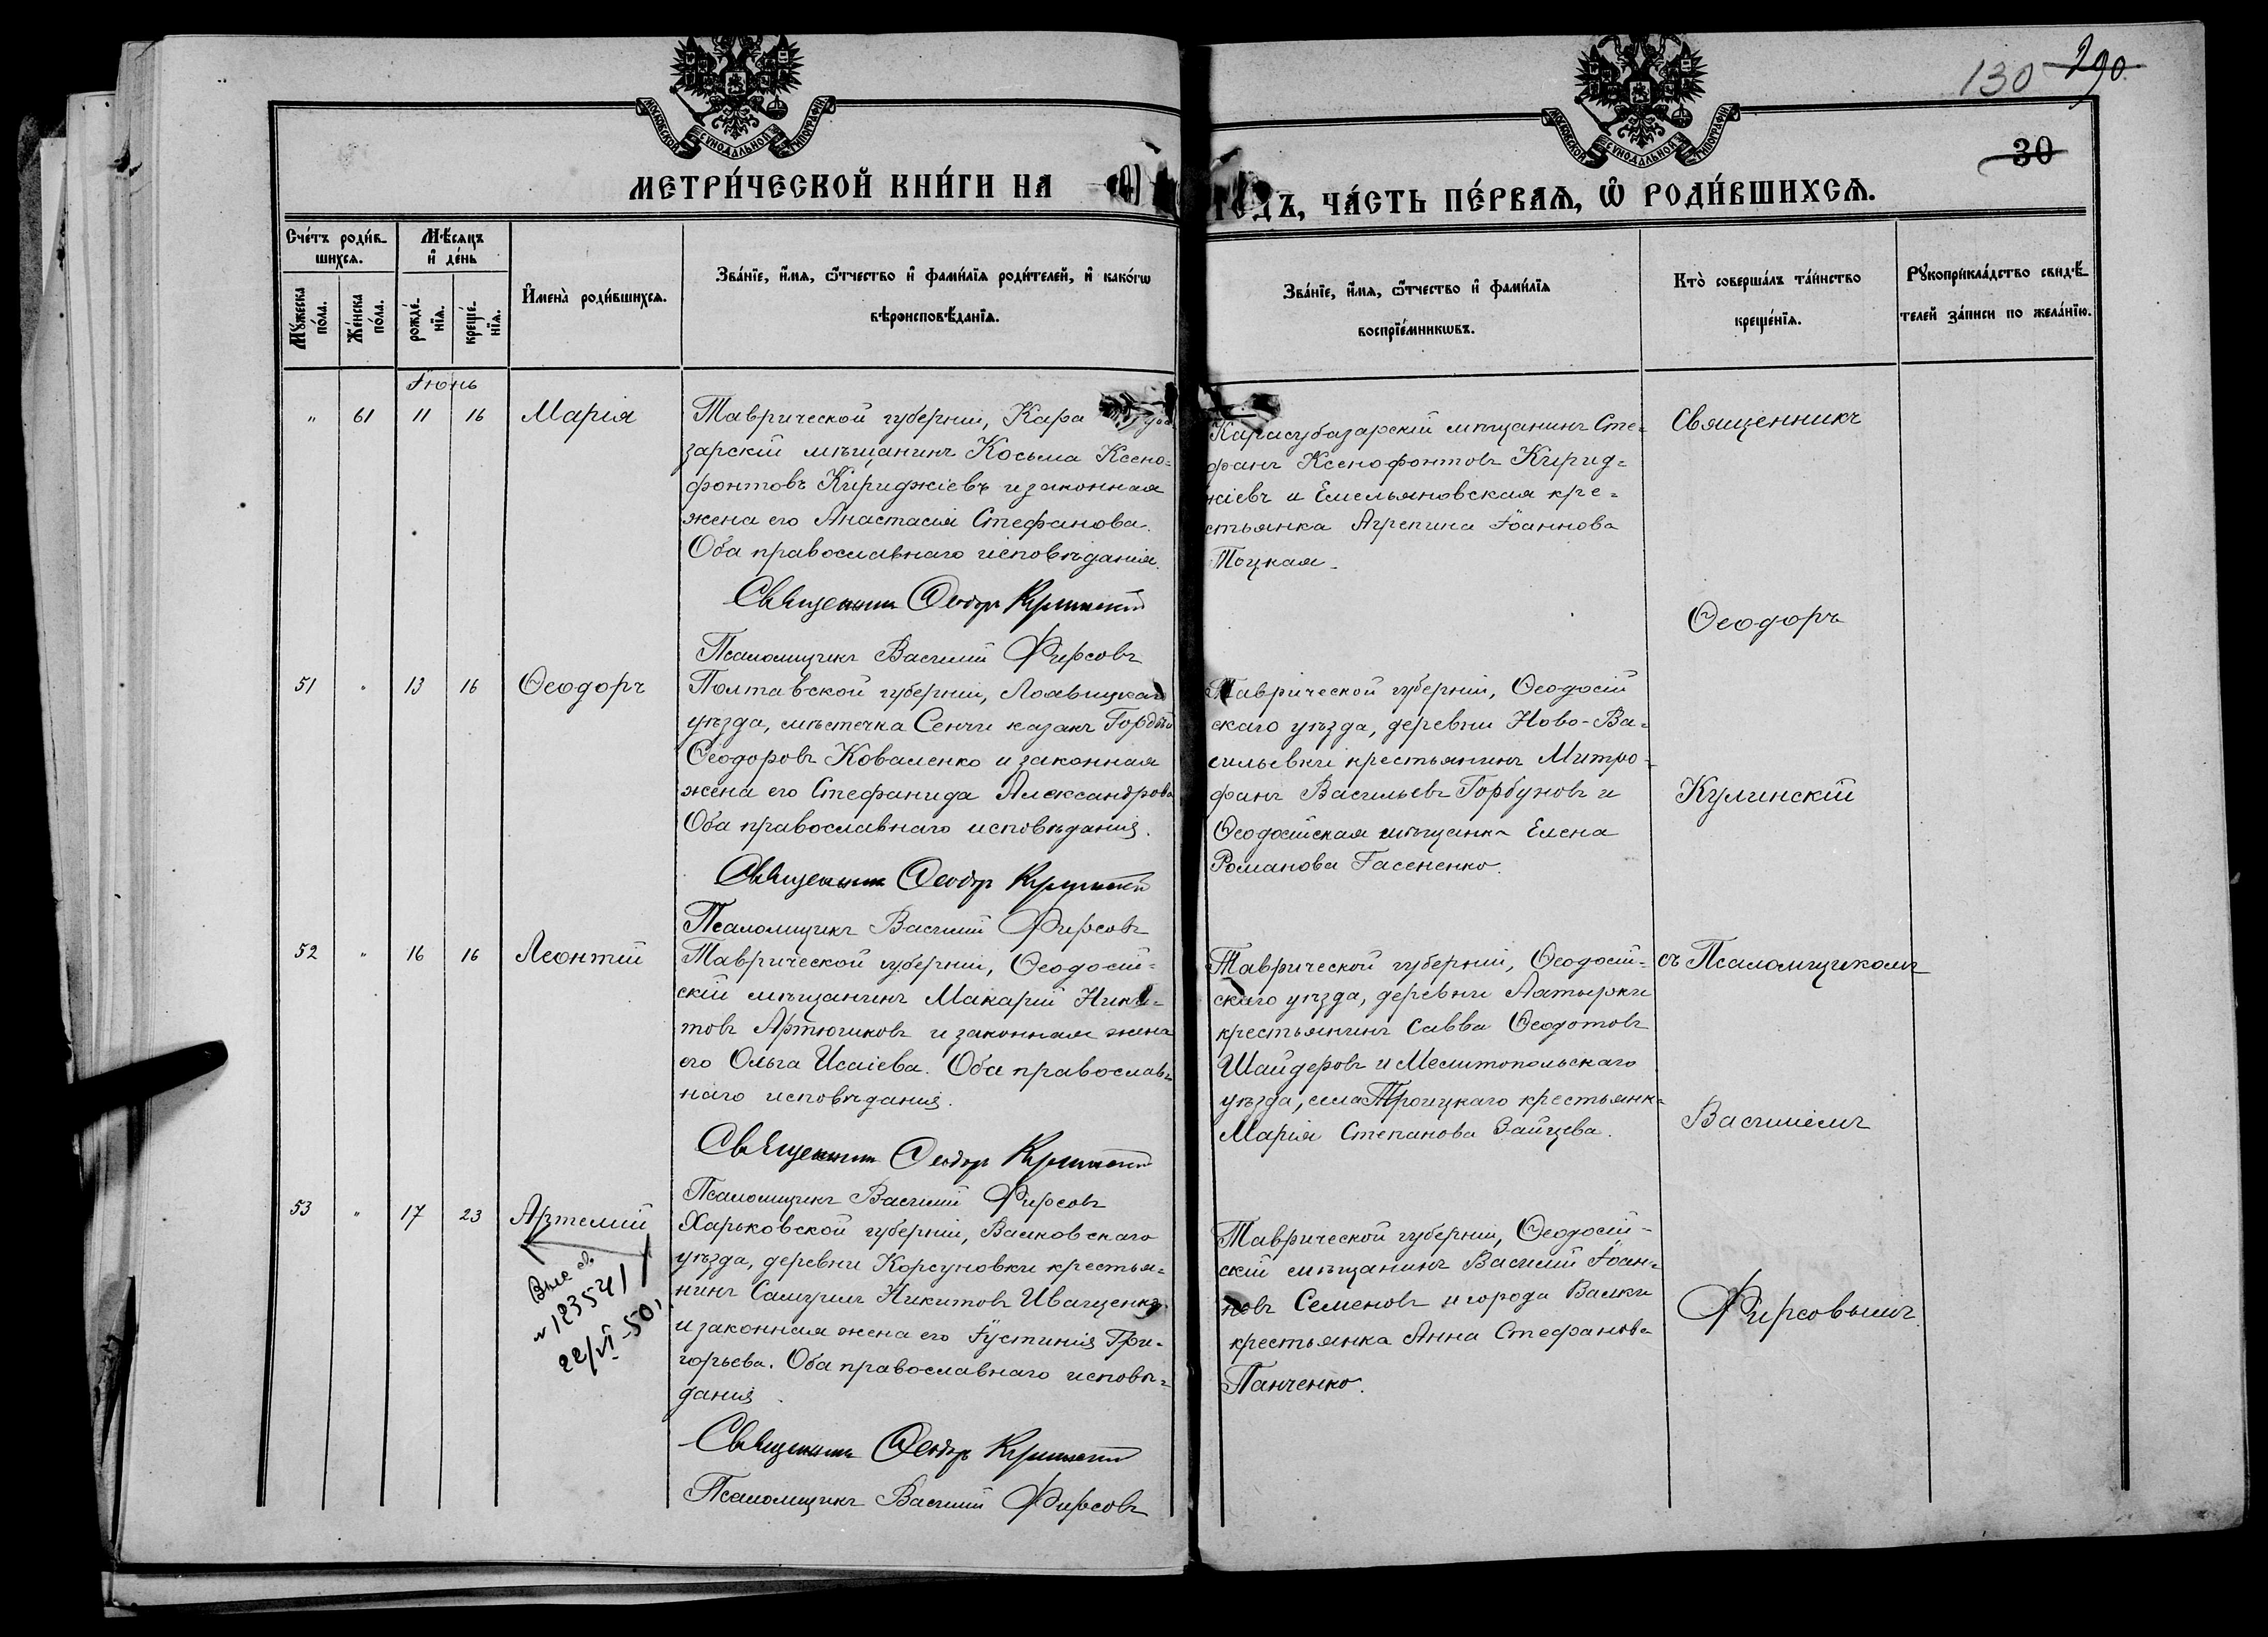 130 290.
30
МОСКОВСКОЙ СѴНОДАЛЬНОЙ ТИПОГРАФІИ
МОСКОВСКОЙ СѴНОДАЛЬНОЙ ТИПОГРАФІИ
МЕТРИ́ЧЕСКОЙ КНИ́ГИ НА
ГОДЪ, ЧА́СТЬ ПЕ́РВАѦ, Ѡ РОДИ́ВШИХСѦ.
Сче́тъ роди́в-
шихсѧ.
Мꙋжеска
по́ла.
Же́нска
по́ла.
Мѣ́сяцъ
и҆ де́нь
рожде́-
нїѧ.
креще́-
нїѧ.
И҆мена̀ роди́вшихсѧ.
Зва́нїе, и҆́мѧ, ѻ҆́тчество и҆ фами́лїѧ роди́телей, и҆ како́гѡ
вѣроисповѣ́данїѧ.
Зва́нїе, и҆́мѧ, ѻ҆́тчество и҆ фами́лїѧ
воспрїе́мникѡвъ.
Кто̀ соверша́лъ та́инство
креще́нїѧ.
Рꙋкоприкла́дство свидѣ́-
телей за́писи по жела́нїю.
Іюнь
" 61 11 16 Марія
Таврической губерніи, Кара
зарскій мѣщанинъ Косьма Ксено=
фонтовъ Кириджіевъ и законная
жена его Анастасія Стефанова.
Оба православнаго исповѣданія.
Священникъ Ѳеодоръ Кулинскій
Псаломщикъ Василій Фирсовъ
Карасубазарскій мѣщанинъ Сте=
фанъ Ксенофонтовъ Кирид=
жіевъ и Емельяновская кре=
стьянка Агрепина Іоаннова
Тоцкая.
Священникъ
Ѳеодоръ
51 " 13 16 Ѳеодоръ
Полтавской губерніи, Лохвицкаго
уѣзда, мѣстечка Сенчи казакъ Гордѣй
Ѳеодоровъ Коваленко и законная
жена его Стефанида Александрова
Оба православнаго исповѣданія.
Священникъ Ѳеодоръ Кулинскій
Псаломщикъ Василій Фирсовъ
Таврической губерніи, Ѳеодосій
скаго уѣзда, деревни Ново-Ва=
сильевки крестьянинъ Митро=
фанъ Васильевъ Горбуновъ и
Ѳеодосійская мѣщанка Елена
Романова Гасененко.
Кулинскій
52 " 16 16 Леонтій
Таврической губерніи, Ѳеодосій=
скій мѣщанинъ Макарій Ники=
товъ Артючиковъ и законная жена
его Ольга Исаіева. Оба православ=
наго исповѣданія.
Священникъ Ѳеодоръ Кулинскій
Псаломщикъ Василій Фирсовъ
Таврической губерніи, Ѳеодосій=
скаго уѣзда, деревни Аатырки
крестьянинъ Савва Ѳеодотовъ
Шайдеровъ и Мелитопольскаго
уѣзда, села Троицкаго крестьянка
Марія Степанова Зайцева.
съ Псаломщикомъ
Василіемъ
53 " 17 23 Артемій
№ 123541
22/VI-50
Харьковской губерніи, Валковскаго
уѣзда, деревни Корсуновки крестья=
нинъ Самуилъ Никитовъ Иващенко
и законная жена его Іустинія Гри=
горьева. Оба православнаго исповѣ=
данія
Священникъ Ѳеодоръ Кулинскій
Псаломщикъ Василій Фирсовъ
Таврической губерніи, Ѳеодосій=
скій мѣщанинъ Василій Іоан=
новъ Семеновъ и города Валки
крестьянка Анна Стефанова
Панченко.
Фирсовымъ.